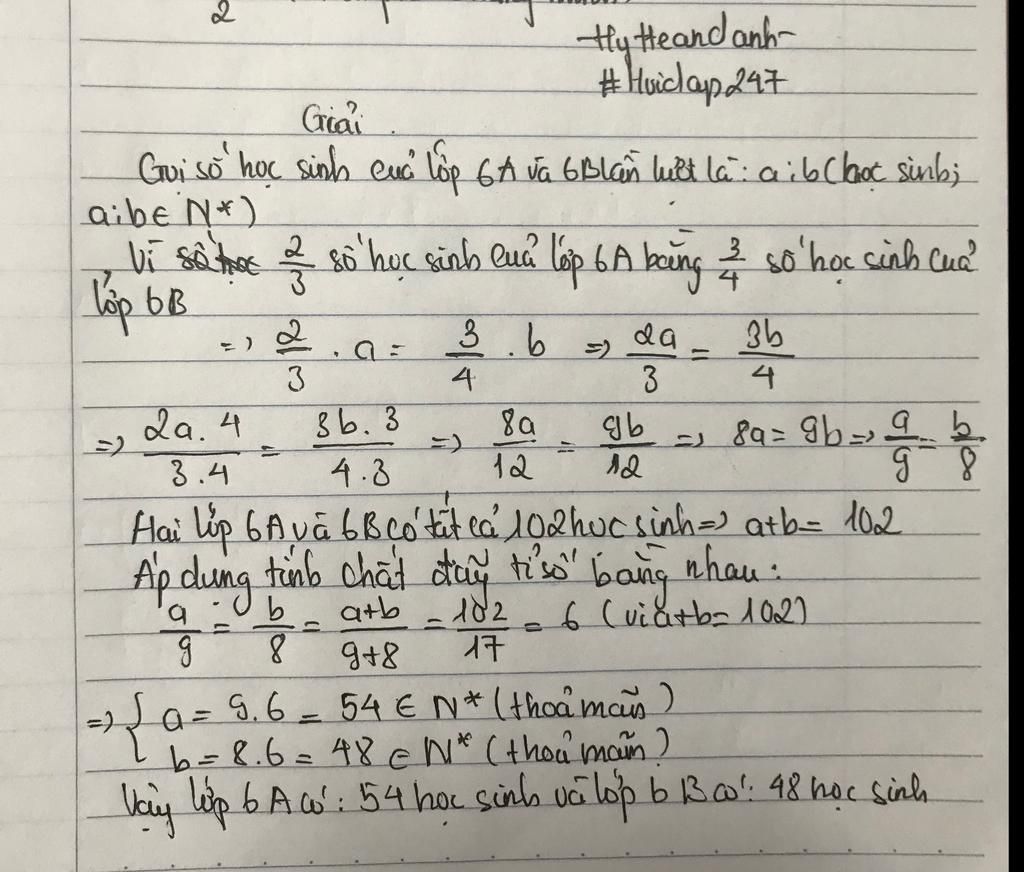 2
-HyHeandanh-
#Hoidap247
Giải.
Gọi số học sinh cuả lớp 6A và 6B lần lượt là: a;b (học sinh;
a;b∈ N*)
Vì 2/3 số học sinh cuả lớp 6A bằng 3/4 số học sinh cuả
lớp 6B
=> 2/3 . a = 3/4 . b => 2a/3 = 3b/4
=> 2a.4/3.4 = 3b.3/4.3 => 8a/12 = 9b/12 => 8a = 9b => a/9 = b/8
Hai lớp 6A và 6B có tất cả 102 học sinh => a+b = 102
Áp dụng tính chất dãy tỉ số bằng nhau:
a/9 = b/8 = a+b/9+8 = 102/17 = 6 (vì a+b = 102)
=> { a = 9.6 = 54 ∈ N* (thoả mãn)
b = 8.6 = 48 ∈ N* (thoả mãn)
Vậy lớp 6A có: 54 học sinh và lớp 6B có: 48 học sinh